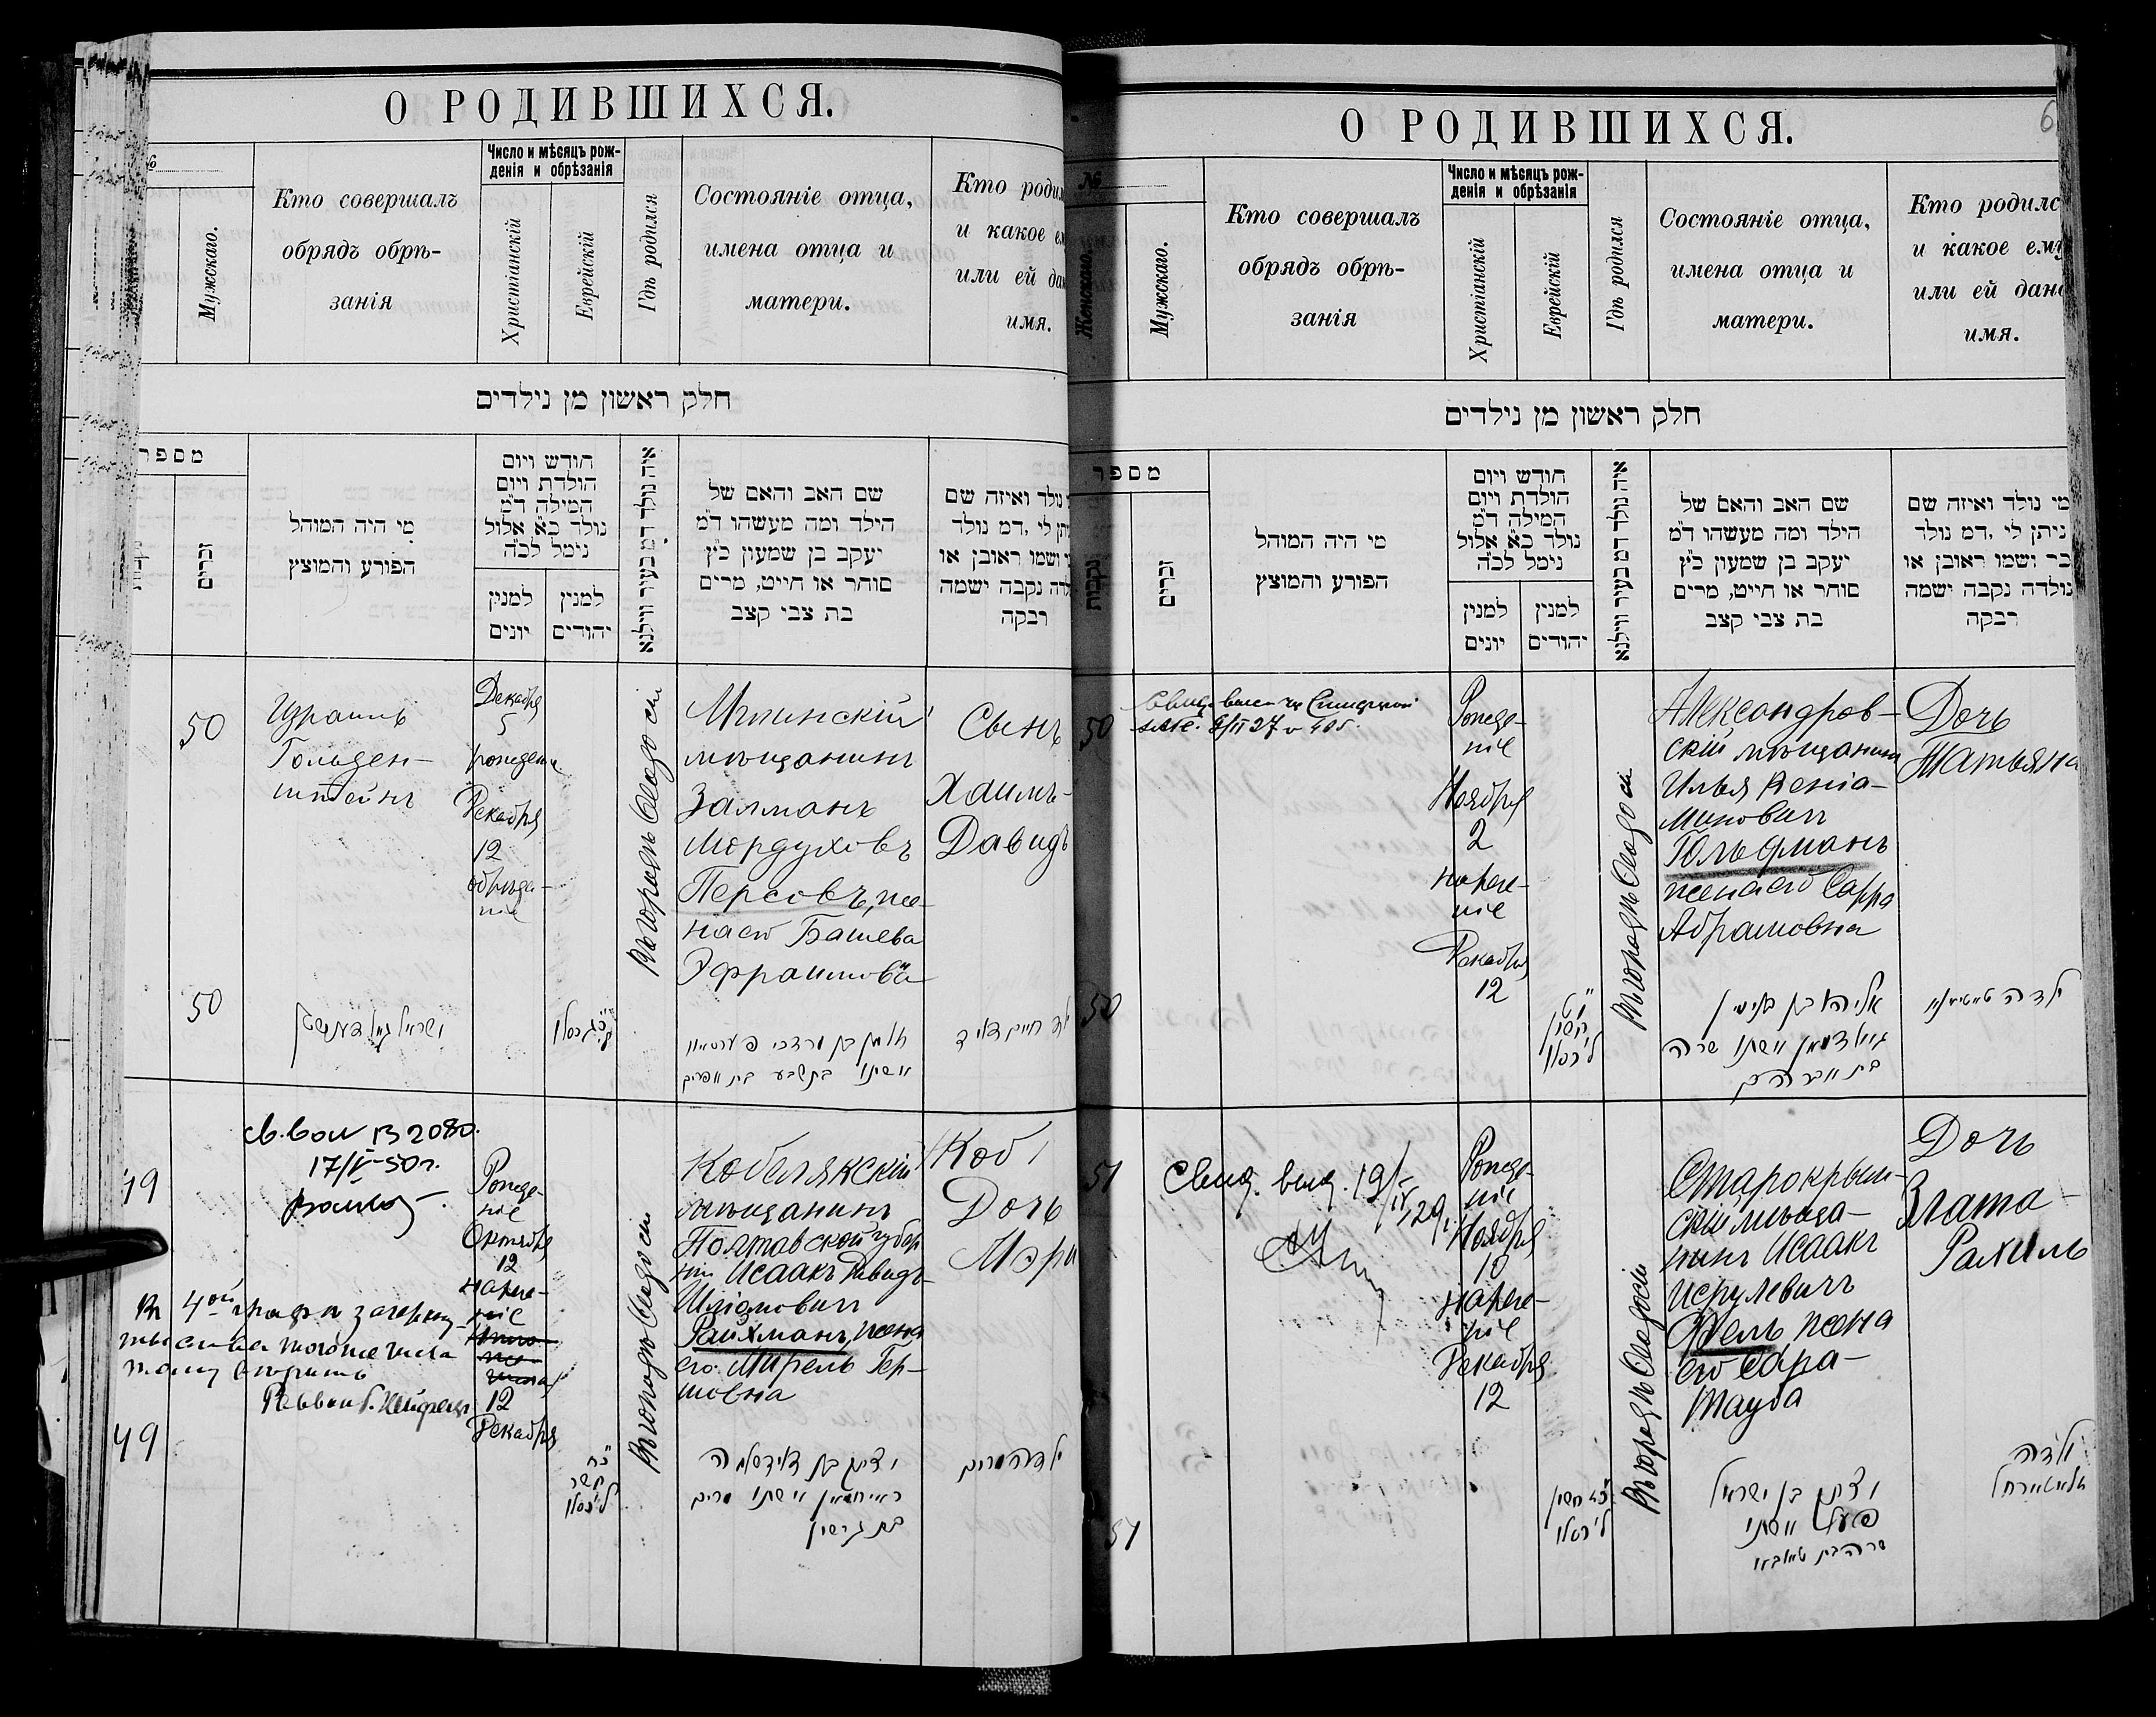 О РОДИВШИХСЯ.
№
Мужскаго.
Кто совершалъ
обрядъ обрѣ-
занія
Число и мѣсяцъ рож-
денія и обрѣзанія
Христіанскій
Еврейскій
Гдѣ родился
Состояніе отца,
имена отца и
матери.
Кто роди
и какое е
или ей да
имя.
חלק ראשון מן נילדים
מספר
זכרים
מי היה המוהל
הפורע והמוצץ
חודש ויום
הולדת ויום
המילה ד״מ
נולד כ״א אלול
נימל לכ״ה
למנין
יונים
למנין
יהודים
איה נולד דמ בעיר ווילנא
שם האב והאם של
הילד ומה מעשהו ד״מ
יעקב בן שמעון כ״ץ
סוחר או חייט, מרים
בת צבי קצב
נולד ואיזה שם
יתן לי, דמ נולד
ושמו ראובן או
נקבה ישמה
רבקה
50
Израиль
Гольден-
штейнъ
Декабря
5
рожденіе
Декабря
12
обрѣза-
ніе
Въ городѣ Ѳеодосіи
Мглинскій
мѣщанинъ
Залманъ
Мордуховъ
Персовъ, же-
на его Башева
Эфраимовна
Сынъ
Хаимъ-
Давидъ
50
חיים דוד
זלמן בן מרדכי פערסאוו
ואשתו בתשבע בת אפרים
49
св. вып 2080.
17/V-50г.
Рожде-
ніе
Октября
12
нарече-
ніе
12
Декабря
Въ 4ой графѣ зачеркну-
тыя слова
тому вѣрить
Раввинъ
Въ городѣ Ѳеодосіи
Кобелякскій
мѣщанинъ
Полтавской губер
ніи Исаакъ Давидъ
Шліомовичъ
Райхманъ, жена
его Мирель Гер-
шовна
Дочь
Мэри
49
כ״ח
תשרי
יצחק בן דוד שלמה
רייחמאן ואשתו מרים
בת גרשון
ילדה מרים
О РОДИВШИХСЯ.
6
№
Женскаго.
Мужскаго.
Кто совершалъ
обрядъ обрѣ-
занія
Число и мѣсяцъ рож-
денія и обрѣзанія
Христіанскій
Еврейскій
Гдѣ родился
Состояніе отца,
имена отца и
матери.
Кто родилс
и какое ему
или ей дано
имя.
חלק ראשון מן נילדים
מספר
נקבות
זכרים
מי היה המוהל
הפורע והמוצץ
חודש ויום
הולדת ויום
המילה ד״מ
נולד כ״א אלול
נימל לכ״ה
למנין
יונים
למנין
יהודים
איה נולד דמ בעיר ווילנא
שם האב והאם של
הילד ומה מעשהו ד״מ
יעקב בן שמעון כ״ץ
סוחר או חייט, מרים
בת צבי קצב
מי נולד ואיזה שם
ניתן לי, דמ נולד
זכר ושמו ראובן או
נולדה נקבה ישמה
רבקה
50
Рожде-
ніе
Ноября
2
нарече-
ніе
Декабря
12
Въ городѣ Ѳеодосіи
Александров-
скій мѣщанинъ
Илья Веніа-
миновичъ
Гольфманъ
жена его Сарра
Абрамовна
Дочь
Татьяна
50
אליהו בן בנימין
ואשתו שרה
בת אברהם
ילדה
51
Свид. выд. 19/IV 29г.
Рожде-
ніе
Ноября
10
нарече-
ніе
Декабря
12
Въ городѣ Ѳеодосіи
Старокрым-
скій мѣща-
нинъ Исаакъ
Исрулевичъ
жена
его Сара-
Тауба
Дочь
Злата-
Рахиль
51
יצחק בן ישראל
ואשתו
ילדה
זלאטא רחל